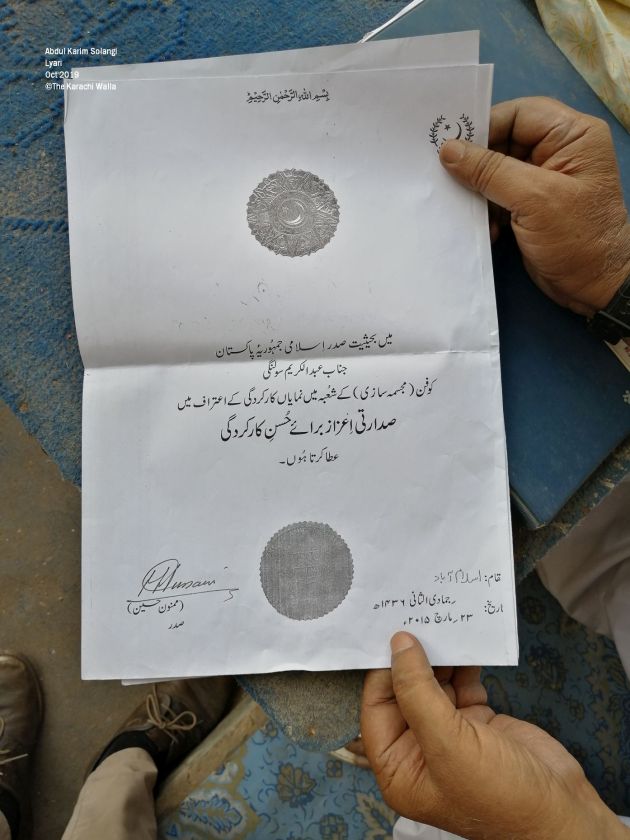 Abdul Karim Solangi
Lyari
Oct 2019
©The Karachi Walla
بِسْمِ اللهِ الرَّحْمٰنِ الرَّحِيْمِ
میں بحیثیت صدر اسلامی جمہوریۂ پاکستان
جناب عبدالکریم سولنگی
کو فن (مجسمہ سازی) کے شعبہ میں نمایاں کارکردگی کے اعتراف میں
صدارتی اعزاز برائے حُسنِ کارکردگی
عطا کرتا ہُوں۔
(ممنون حسین)
صدر
قام: اسلام آباد
تاریخ: جمادی الثانی ۱۴۳۶ھ
۲۳؍ مارچ ۲۰۱۵ء